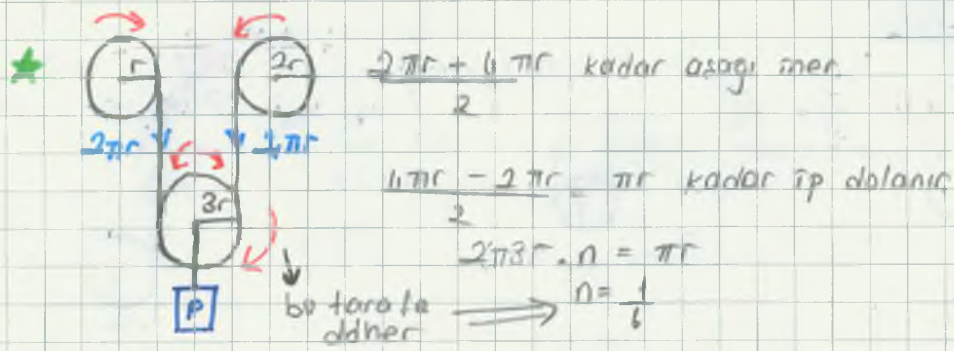 r 2r
2πr + 4πr kadar aşagı iner.
2
2πr 4πr
3r
4πr - 2πr = πr kadar ip dolanır
2
2π3r . n = πr
n = 1
6
P bu tarafa
döner